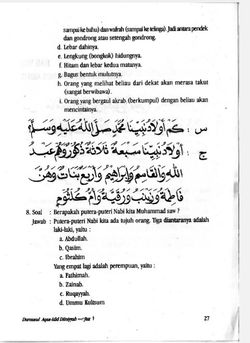 sampai ke bahu) dan wafrah (sampai ke telinga). Jadi antara pendek
dan gondrong atau setengah gondrong.
d. Lebar dahinya.
e. Lengkung (bongkok) hidungnya.
f. Hitam dan lebar kedua matanya.
g. Bagus bentuk mulutnya.
h. Orang yang melihat beliau dari dekat akan merasa takut
(sangat berwibawa).
i. Orang yang bergaul akrab (berkumpul) dengan beliau akan
mencintainya.
س : كم أولاد نبينا محمد صلى الله عليه وسلم؟
ج : أولاد نبينا سبعة ثلاثة ذكور وهم عبد
الله والقاسم وإبراهيم وأربع بنات وهن
فاطمة وزينب ورقية وأم كلثوم
8. Soal : Berapakah putera-puteri Nabi kita Muhammad saw ?
Jawab : Putera-puteri Nabi kita ada tujuh orang. Tiga diantaranya adalah
laki-laki, yaitu :
a. Abdullah.
b. Qasim.
c. Ibrahim
Yang empat lagi adalah perempuan, yaitu :
a. Fathimah.
b. Zainab.
c. Ruqayyah.
d. Ummu Kultsum
Durusul Aqaa-idid Diiniyah — Juz 1
27